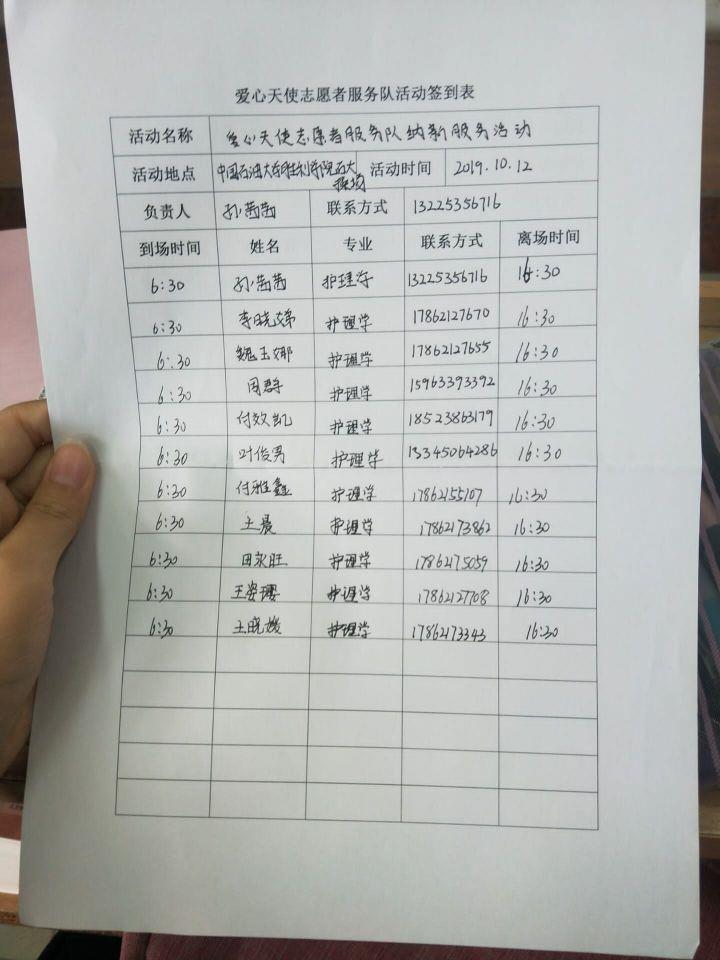 爱心天使志愿者服务队活动签到表
活动名称 爱心天使志愿者服务队纳新服务活动
活动地点 中国石油大学胜利学院石大操场 活动时间 2019.10.12
负责人 孙茜茜 联系方式 13225356716
到场时间 姓名 专业 联系方式 离场时间
6:30 孙茜茜 护理学 13225356716 16:30
6:30 李晓娣 护理学 17862127670 16:30
6:30 魏玉娜 护理学 17862127655 16:30
6:30 周群 护理学 15963393392 16:30
6:30 付效凯 护理学 18523863179 16:30
6:30 叶俊男 护理学 13345064286 16:30
6:30 付雅鑫 护理学 17862155107 16:30
6:30 王晨 护理学 17862173862 16:30
6:30 田永旺 护理学 17862175059 16:30
6:30 王姿璎 护理学 17862127708 16:30
6:30 王晓 护理学 17862173343 16:30